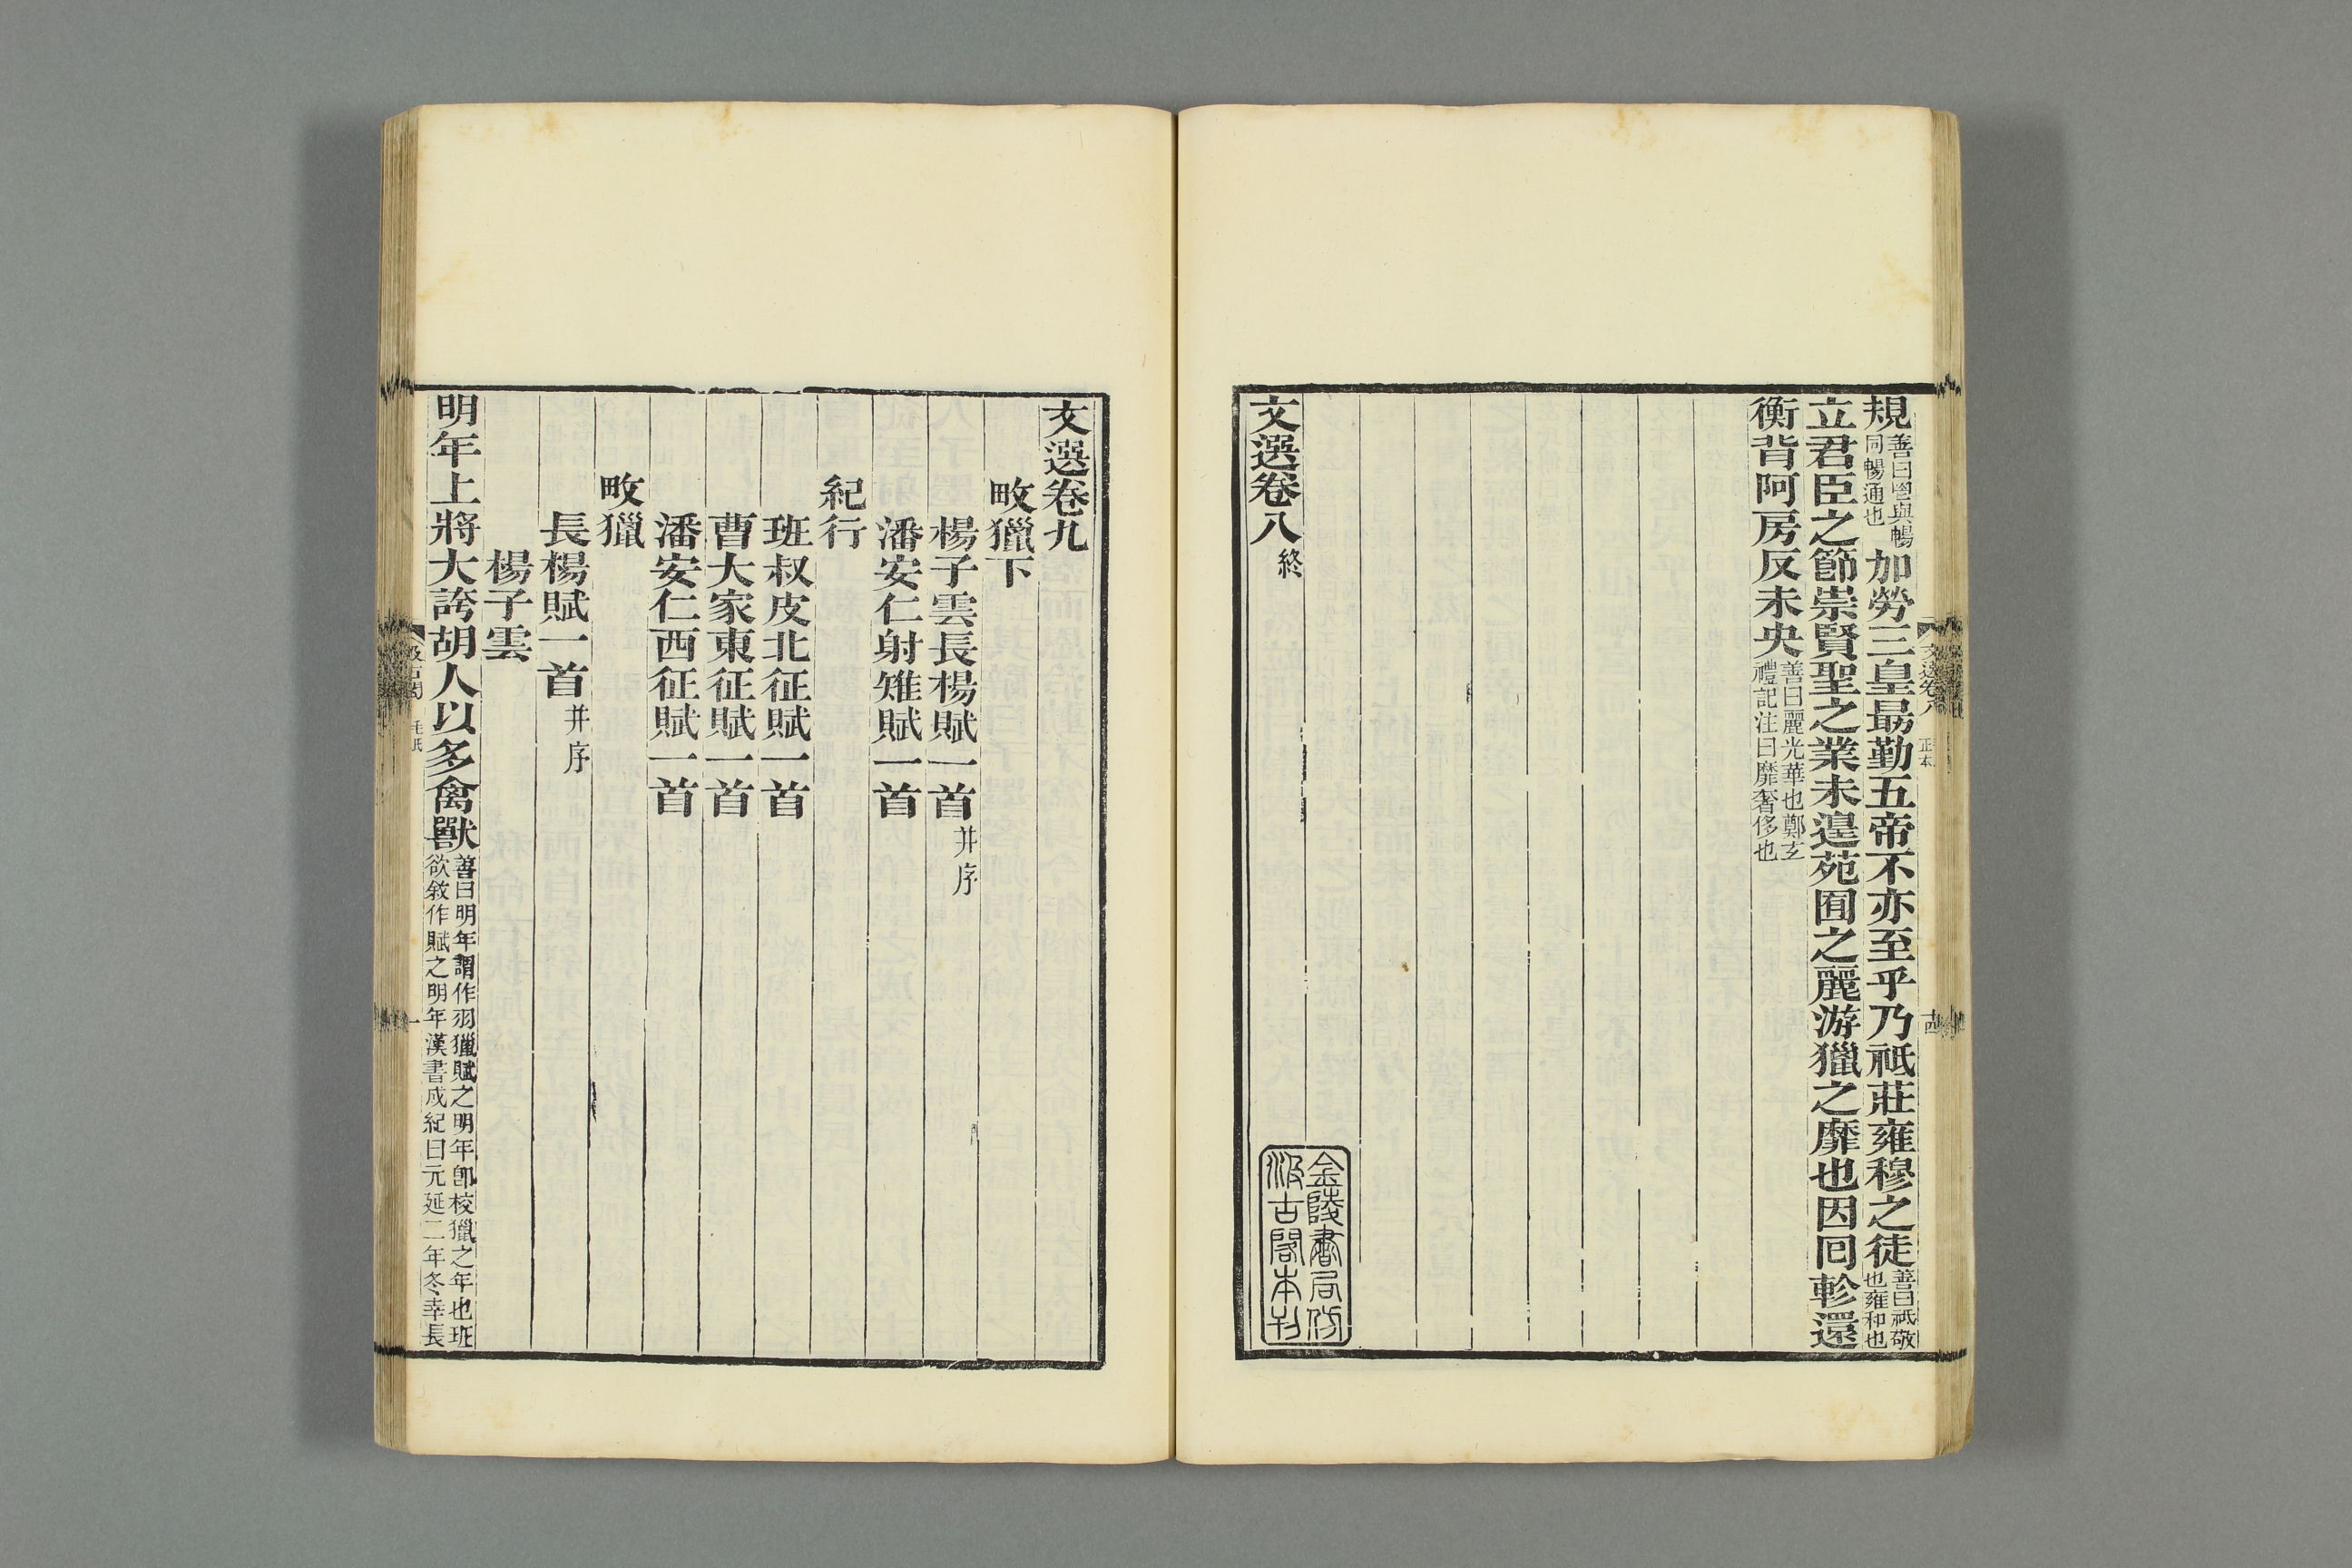 規善曰鬯與暢同暢通也加勞三皇勗勤五帝不亦至乎乃祗莊雍穆之徒善曰祗敬也雍和也
立君臣之節崇賢聖之業未遑苑囿之麗游獵之靡也因回軫還
衡背阿房反未央善曰麗光華也鄭玄禮記注曰靡奢侈也
文選卷八終
金陵書局仿
汲古閣本刊
文選卷八
十四
文選卷九
畋獵下
楊子雲長楊賦一首并序
潘安仁射雉賦一首
紀行
班叔皮北征賦一首
曹大家東征賦一首
潘安仁西征賦一首
畋獵
長楊賦一首并序
楊子雲
明年上將大誇胡人以多禽獸善曰明年謂作羽獵賦之明年卽校獵之年也班欲敘作賦之明年漢書成紀曰元延二年冬幸長